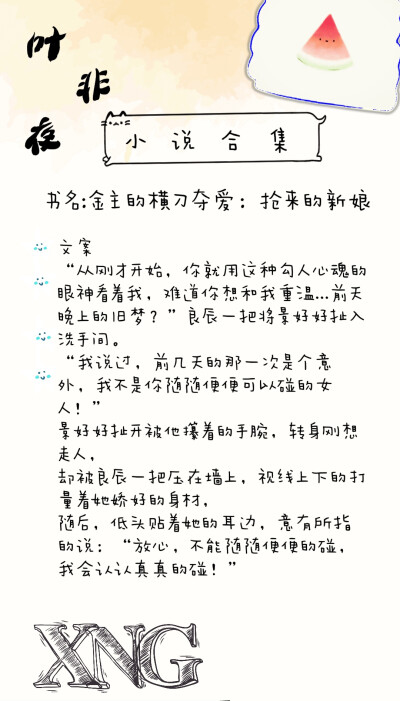 叶非夜
小说合集
书名:金主的横刀夺爱：抢来的新娘
文案
“从刚才开始，你就用这种勾人心魂的
眼神看着我，难道你想和我重温...前天
晚上的旧梦？”良辰一把将景好好扯入
洗手间。
“我说过，前几天的那一次是个意
外，我不是你随随便便可以碰的女
人！”
景好好扯开被他攥着的手腕，转身刚想
走人，
却被良辰一把压在墙上，视线上下的打
量着她娇好的身材，
随后，低头贴着她的耳边，意有所指
的说：“放心，不能随随便便的碰，
我会认认真真的碰！”
XNG